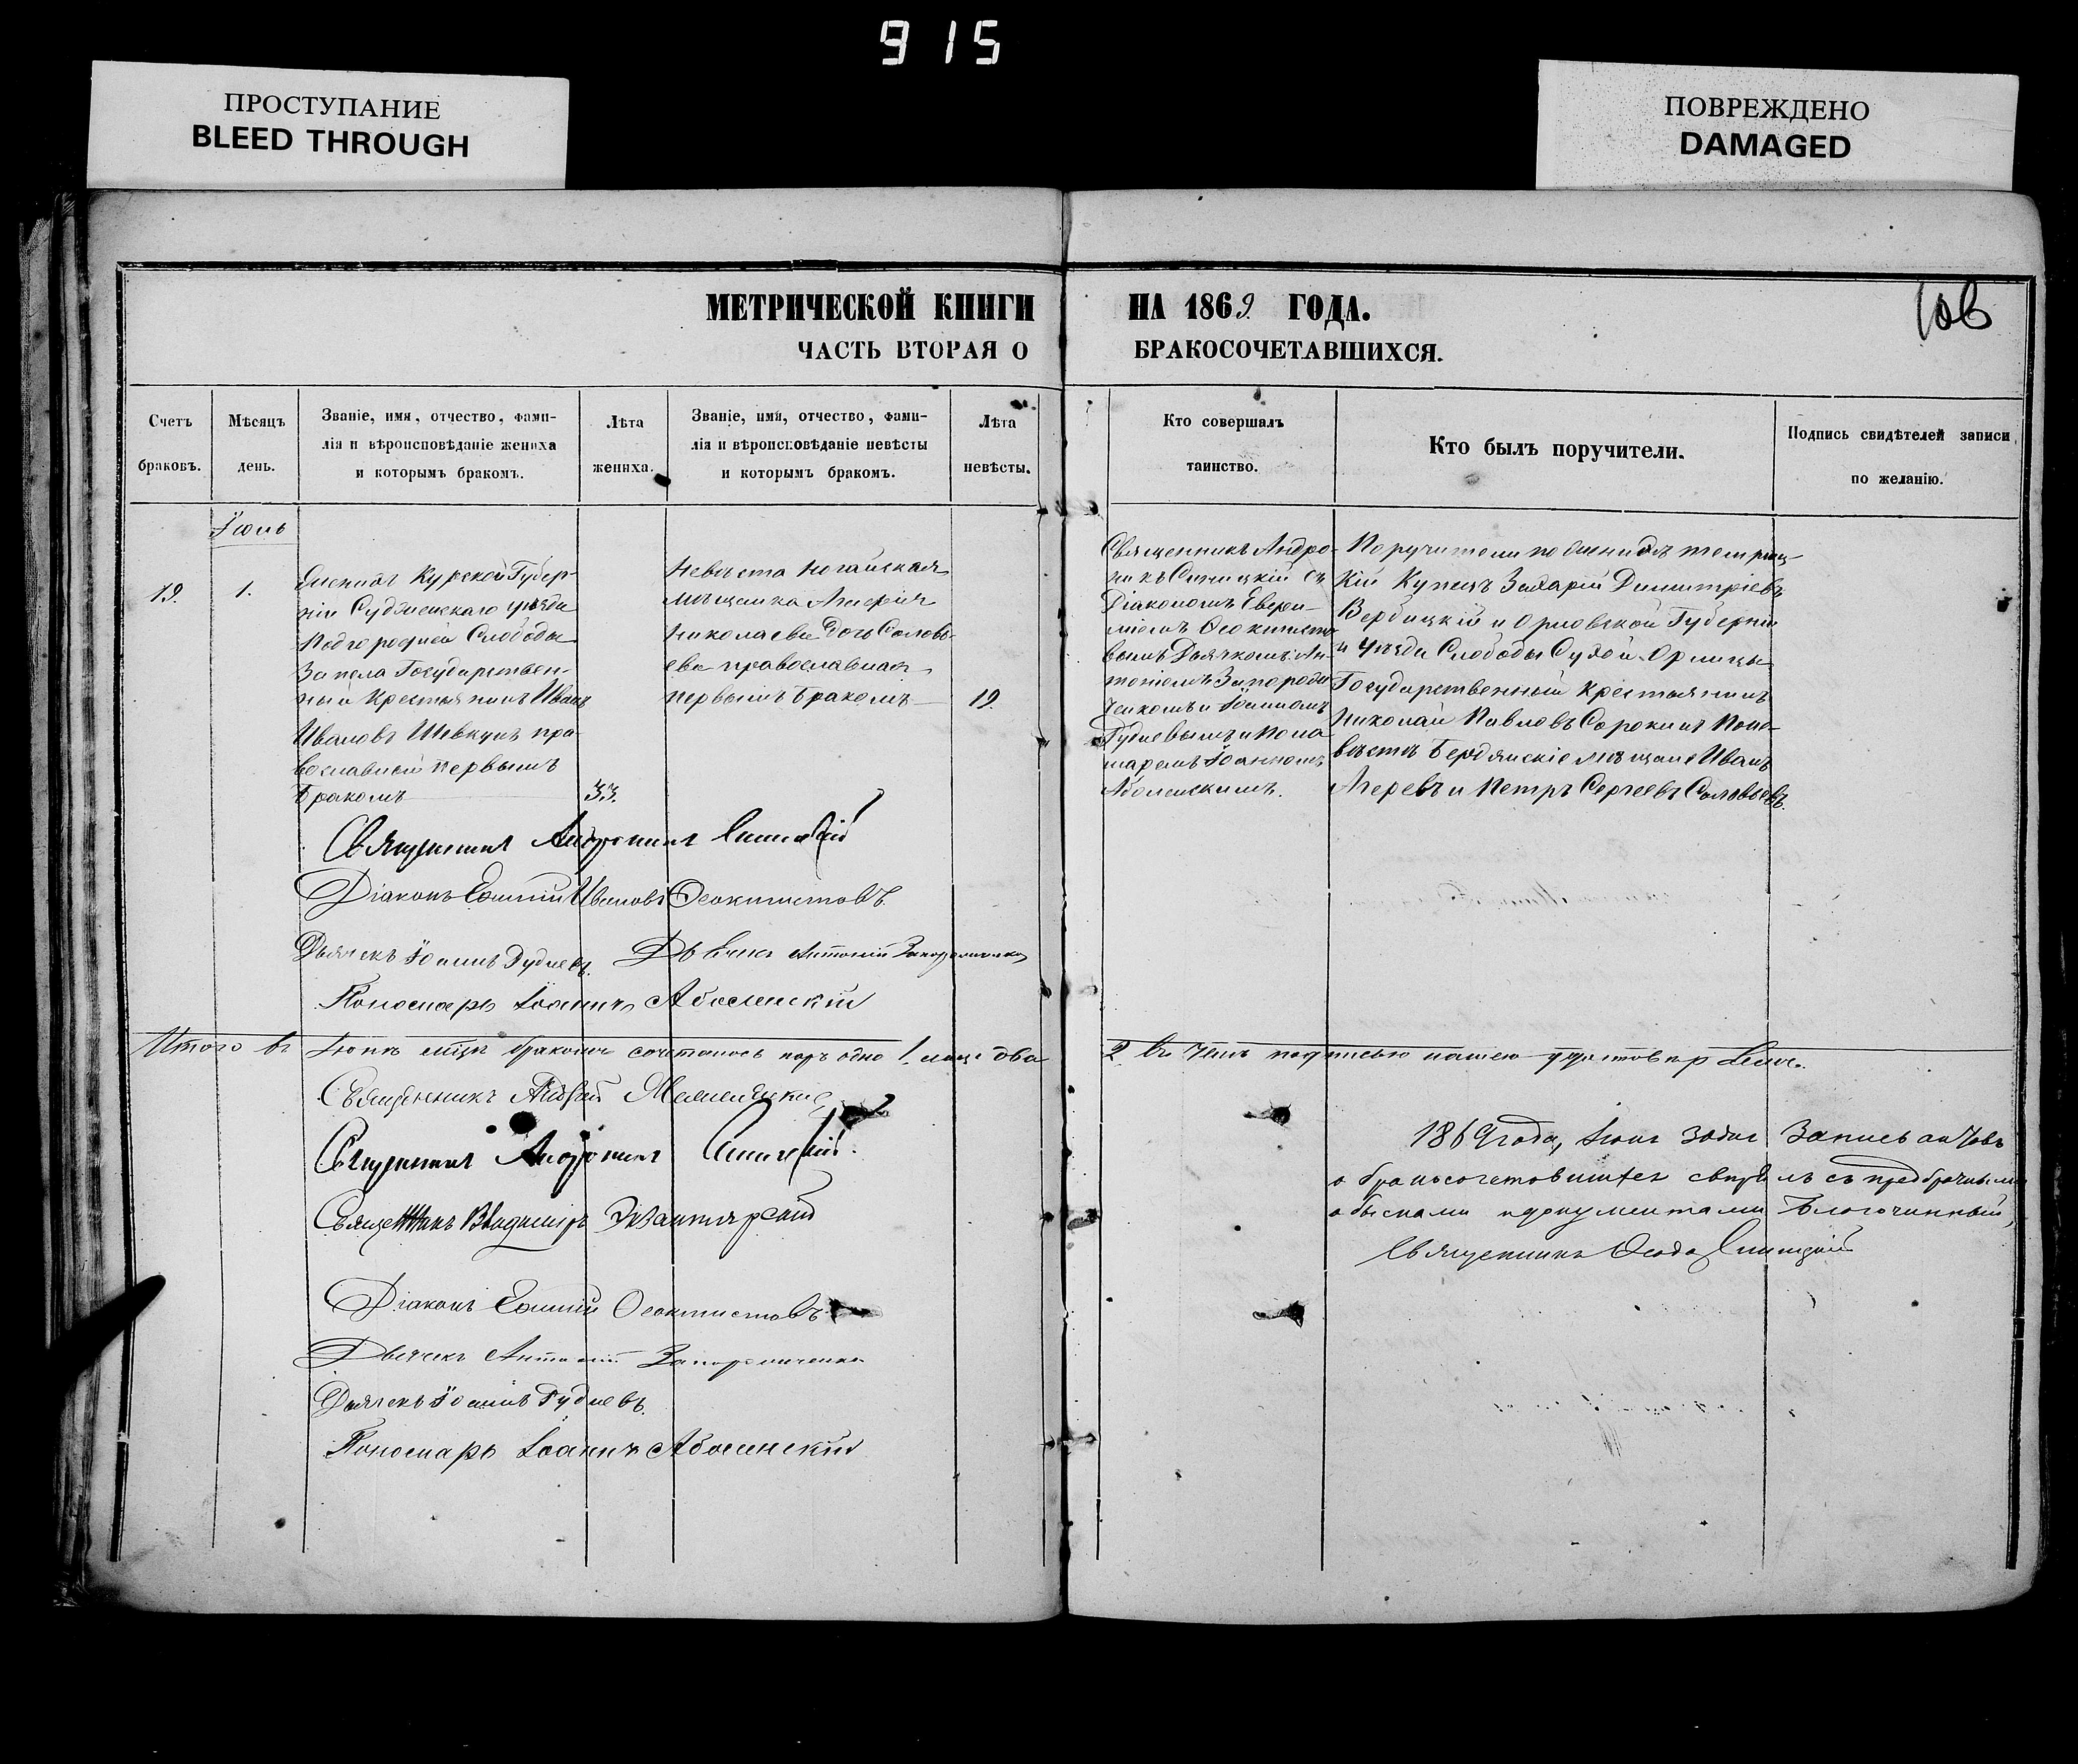 915
ПРОСТУПАНИЕ
BLEED THROUGH
ПОВРЕЖДЕНО
DAMAGED
МЕТРИЧЕСКОЙ КНИГИ НА 1869 ГОДА.
106
ЧАСТЬ ВТОРАЯ О БРАКОСОЧЕТАВШИХСЯ.
Счетъ браковъ.
Мѣсяцъ день.
Званіе, имя, отчество, фами-
лія и вѣроисповѣданіе жениха
и которымъ бракомъ.
Лѣта жениха.
Званіе, имя, отчество, фами-
лія и вѣроисповѣданіе невѣсты
и которымъ бракомъ.
Лѣта невѣсты.
Кто совершалъ таинство.
Кто былъ поручители.
Подпись свидѣтелей записи по желанію.
Іюнь
19.
1.
Женихъ Курской Губер-
ніи Суджанскаго уѣзда
Подгородней Слободы
Заполя Государствен-
ный Крестьянинъ Иванъ
Ивановъ Шевкунъ пра-
вославный первымъ
бракомъ
33.
Невѣста Ногайская
мѣщанка
Николаева дочь Соловь-
ева православная
первымъ бракомъ
19.
Священникъ Андро-
никъ Синицкій съ
Діакономъ
Ѳеоктисто-
вымъ Дьячкомъ Ан-
тоніемъ Запорож-
ченкомъ и Іоанномъ
Рудневымъ и Поно-
маремъ Іоанномъ
Аболенскимъ.
Поручители по женихѣ
Купецъ Захарій Димитріевъ
Вербицкій и Орловской Губерніи
и уѣзда Слободы Сухой Орлицы
Государственный крестьянинъ
Николай Павловъ Сорокинъ по не-
вѣстѣ Бердянскіе мѣщане Иванъ
и Петръ Сергеевъ Соловьевъ.
Священникъ Андроникъ Синицкій
Діаконъ Ефимій Ивановъ Ѳеоктистовъ
Дьячекъ Іоаннъ Рудневъ. Дьячекъ Антоній Запорожченко
Пономарь Іоаннъ Аболенскій
Итого въ Іюнѣ м-цѣ бракомъ сочеталось паръ одна 1. лицъ два 2. въ чемъ подписью нашею удостовѣряемъ.
Священникъ
Священникъ Андроникъ Синицкій.
Священникъ Владиміръ
Діаконъ Ефимій Ѳеоктистовъ
Дьячекъ Антоній Запорожченко
Дьячекъ Іоаннъ Рудневъ.
Пономарь Іоаннъ Аболенскій
1869 года, Іюня 30 дня Запись актовъ
о бракосочетавшихся свѣрялъ съ предбрачными
обысками и документами Благочинный,
Священникъ Синицкій